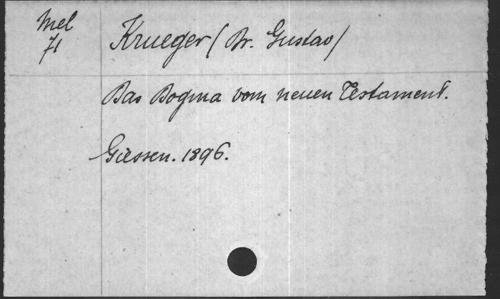 Mel
71
Krueger (Dr. Gustav)
Das Dogma vom neuen Testament.
Giessen. 1896.